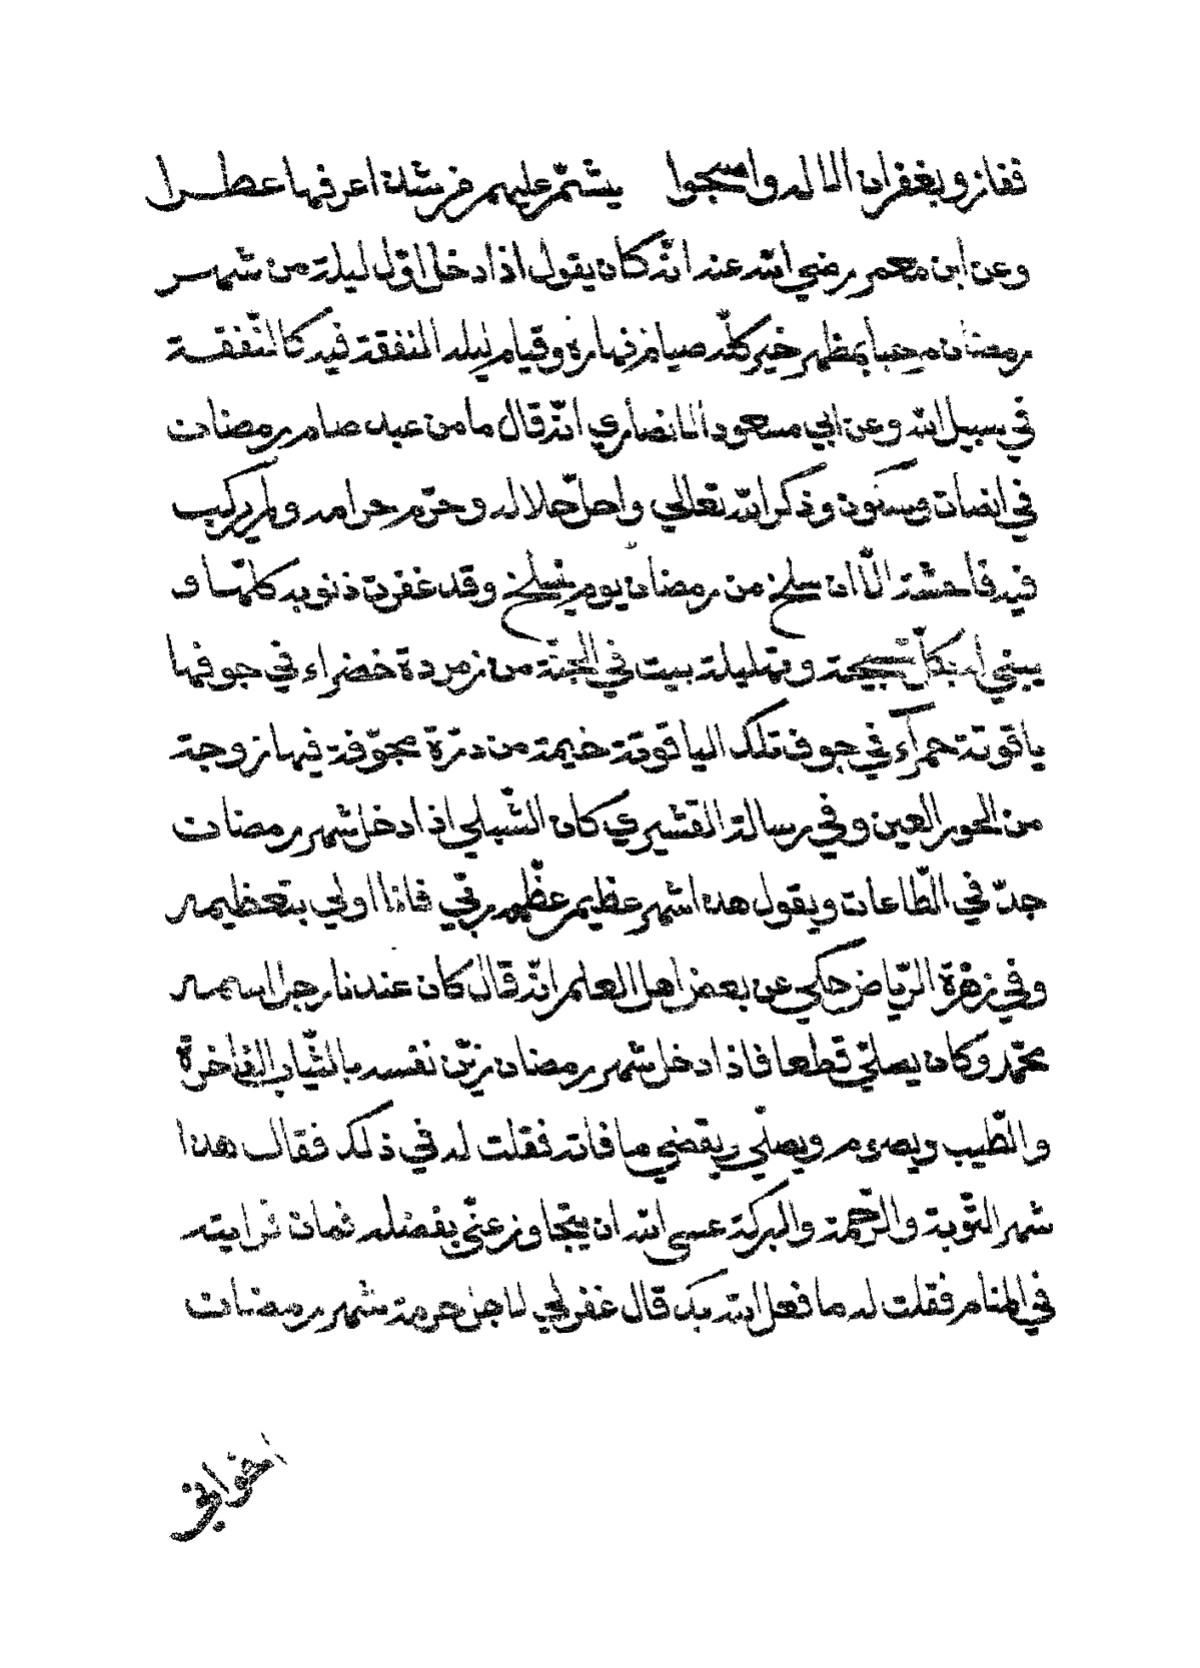 ففازو بغفران الاله واصبحوا يشتم عليهم من شدة اعرفها عطرا
وعن ابن معمر رضي الله عنه انه كان يقول اذا دخل اول ليلة من شهر
رمضان مرحبا بمطهر خير كله صيام نهاره وقيام ليله النفقة فيه كالنفقة
في سبيل الله وعن ابي مسعود الانصاري انه قال ما من عبد صام رمضان
في انصات وسكون وذكر الله تعالى واحل حلاله وحرم حرامه ولم يركب
فيه فاحشة الا ان سلخ من رمضان يوم ينسلخ وقد غفرت ذنوبه كلها و
يبني له بكل تسبيحة وتهليلة بيت في الجنة من زمردة خضراء في جوفها
ياقوتة حمرآء في جوف تلك الياقوتة خيمة من درة مجوفة فيها زوجة
من الحور العين وفي رسالة القشيري كان الشبلي اذا دخل شهر رمضان
جد في الطاعات ويقول هذا شهر عظيم عظمه ربي فانا اولى بتعظيمه
وفي زهرة الرياض حكي عن بعض اهل العلم انه قال كان عندنا رجل اسمه
محمد وكان يصلي قطعا فاذا دخل شهر رمضان زين نفسه بالثياب الفاخرة
والطيب ويصوم ويصلي ويقضي ما فاته فقلت له في ذلك فقال هذا
شهر التوبة والرحمة والبركة عسى الله ان يتجاوز عني بفضله فمات فرايته
في المنام فقلت له ما فعل الله بك قال غفر لي لاجل حرمة شهر رمضان
اخواني